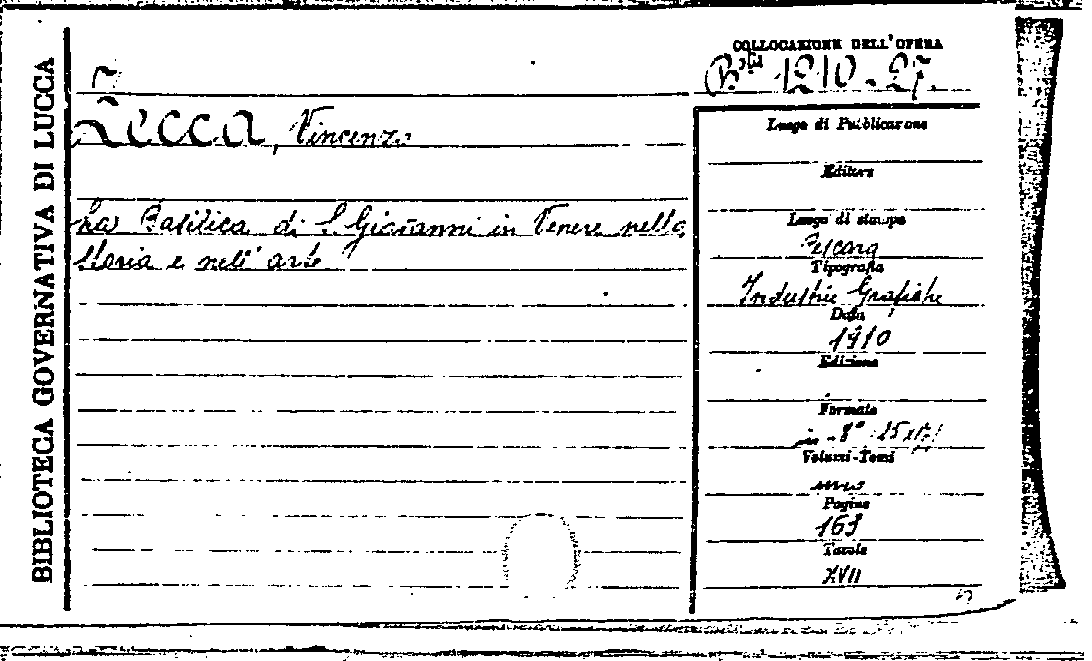 BIBLIOTECA GOVERNATIVA DI LUCCA
COLLOCAZIONE DELL'OPERA
1210.27.
Zecca, Vincenzo
La Basilica di S. Giovanni in Venere nella
storia e nell'arte
Luogo di Pubblicazione
Editore
Luogo di stampa
Pescara
Tipografia
Industrie Grafiche
Data
1910
Edizione
Formato
in-8°
Volumi-Tomi
uno
Pagine
163
Tavole
XVII